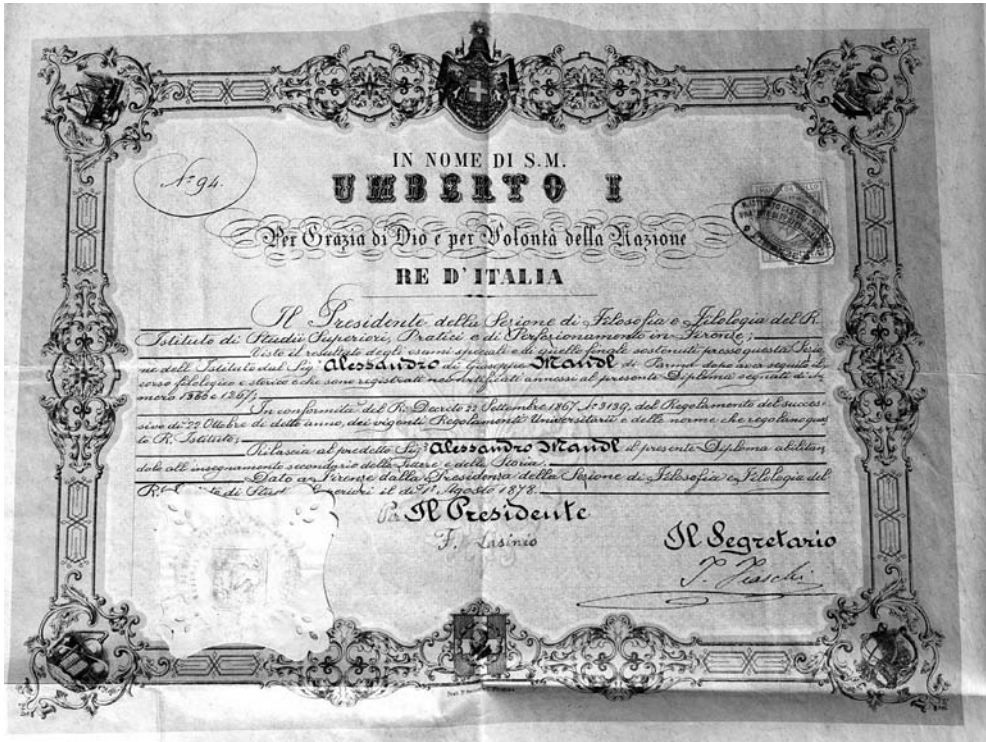 Nº 94.
IN NOME DI S.M.
UMBERTO I
Per Grazia di Dio e per Volontà della Nazione
RE D'ITALIA
Il Presidente della Sezione di Filosofia e Filologia del R.
Istituto di Studii Superiori, Pratici e di Perfezionamento in Firenze;
Visto il resultato degli esami speciali e di quello finale sostenuti presso questa Sezio
ne dell'Istituto dal Sigr Alessandro di Giuseppe Mandl di Parma dopo aver seguito il
corso filologico e storico e che sono registrati nei certificati annessi al presente Diploma segnati di nu
mero 1366 e 1367;
In conformità del R. Decreto 22 Settembre 1867 Nº 3139, del Regolamento del succes
sivo dì 22 Ottobre di detto anno, dei vigenti Regolamenti Universitarii e delle norme che regolano ques
to R. Istituto;
Rilascia al predetto Sigr Alessandro Mandl il presente Diploma abilitan
dolo all'insegnamento secondario delle Lettere e della Storia.
Dato a Firenze dalla Presidenza della Sezione di Filosofia e Filologia del
di il dì 1º Agosto 1878.
Il Presidente
F. Lasinio
Il Segretario